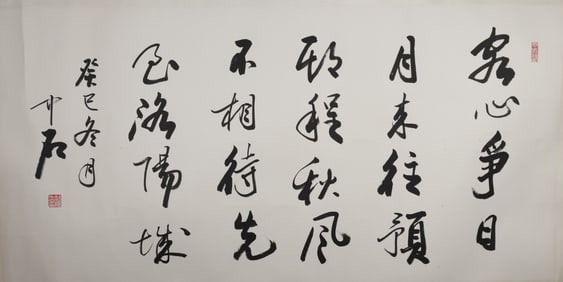 客心爭日
月来往預
期程秋風
不相待先
至洛陽城
癸巳冬月
中石